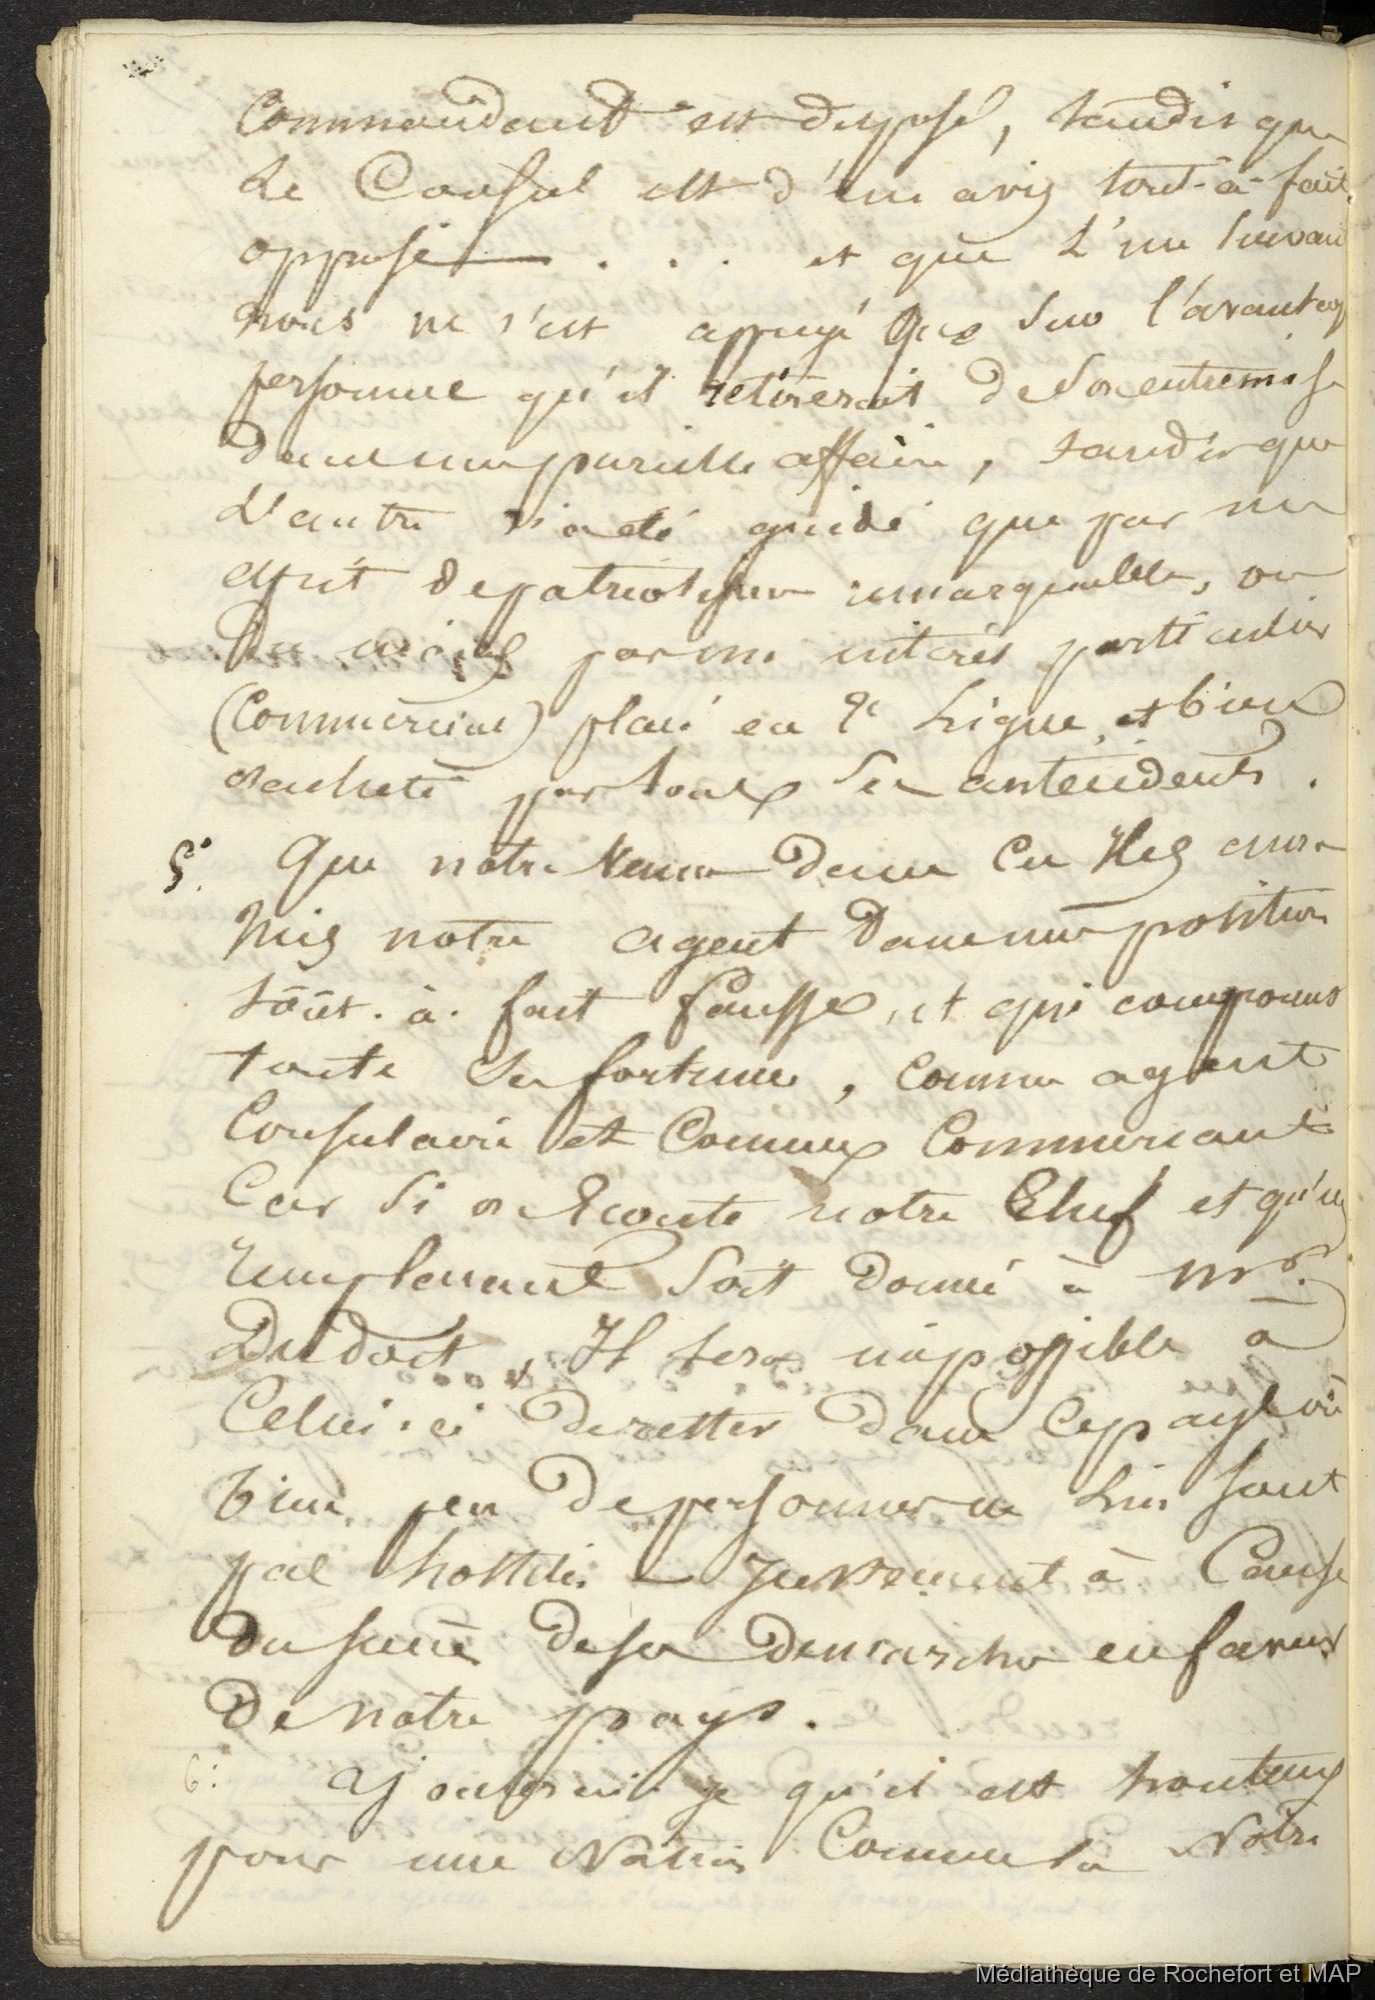 Commandant est disposé, tandis que
Le Consul est d'un avis tout-à-fait
opposé — . . . et que L'un suivant
nous ne s'est appuyé que sur l'avantage
personnel qu'il retirerait de son entremise
dans une pareille affaire, tandis que
L'autre n'a été guidé que par un
esprit de patriotisme remarquable, ou
du moins par un intérêt particulier
(Commercial) placé en 2e Ligne, et bien
racheté par tous ses antécédents.
5° Que notre venue dans ces Iles aura
mis notre agent dans une position
tout-à-fait fausse, et qui compromet
toute sa fortune, comme agent
Consulaire et Comme Commercant
Car si on Ecoute notre Chef et qu'un
remplacant soit donné à Mr.
Dudoit, Il sera impossible à
Celui-ci de rester dans ce pays où
bien peu de personnes ne lui sont
pas hostiles — Justement à Cause
du succès de sa demarche en faveur
de notre pays.
6: ajouterai-je qu'il est honteux
pour une Nation Comme la Notre
Médiathèque de Rochefort et MAP